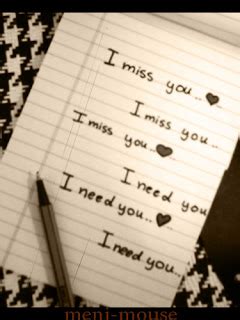 I miss you..
I miss you..
I miss you..
I need you
I need you..
I need you..
meni-mouse